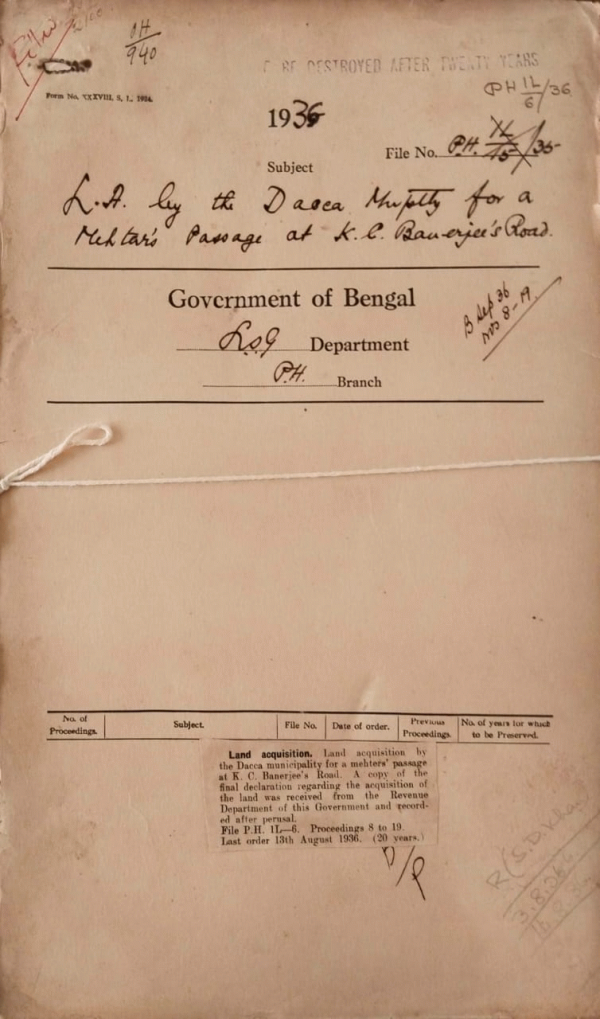 OH
940
BE DESTROYED AFTER TWENTY YEARS
Form No. XXXVIII, S. L., 1934.
PH 1L/6/36
1936
File No. P.H. 1L/15/35
Subject
L.A. by the Dacca Muplty for a
Mehtar's Passage at K. C. Banerjee's Road.
Government of Bengal
B Sep 36
Nos 8-19.
L.S.G Department
P.H. Branch
No. of Proceedings. Subject. File No. Date of order. Previous Proceedings. No. of years for which to be Preserved.
Land acquisition. Land acquisition by
the Dacca municipality for a mehters' passage
at K. C. Banerjee's Road. A copy of the
final declaration regarding the acquisition of
the land was received from the Revenue
Department of this Government and record-
ed after perusal.
File P.H. 1L—6. Proceedings 8 to 19.
Last order 13th August 1936. (20 years.)